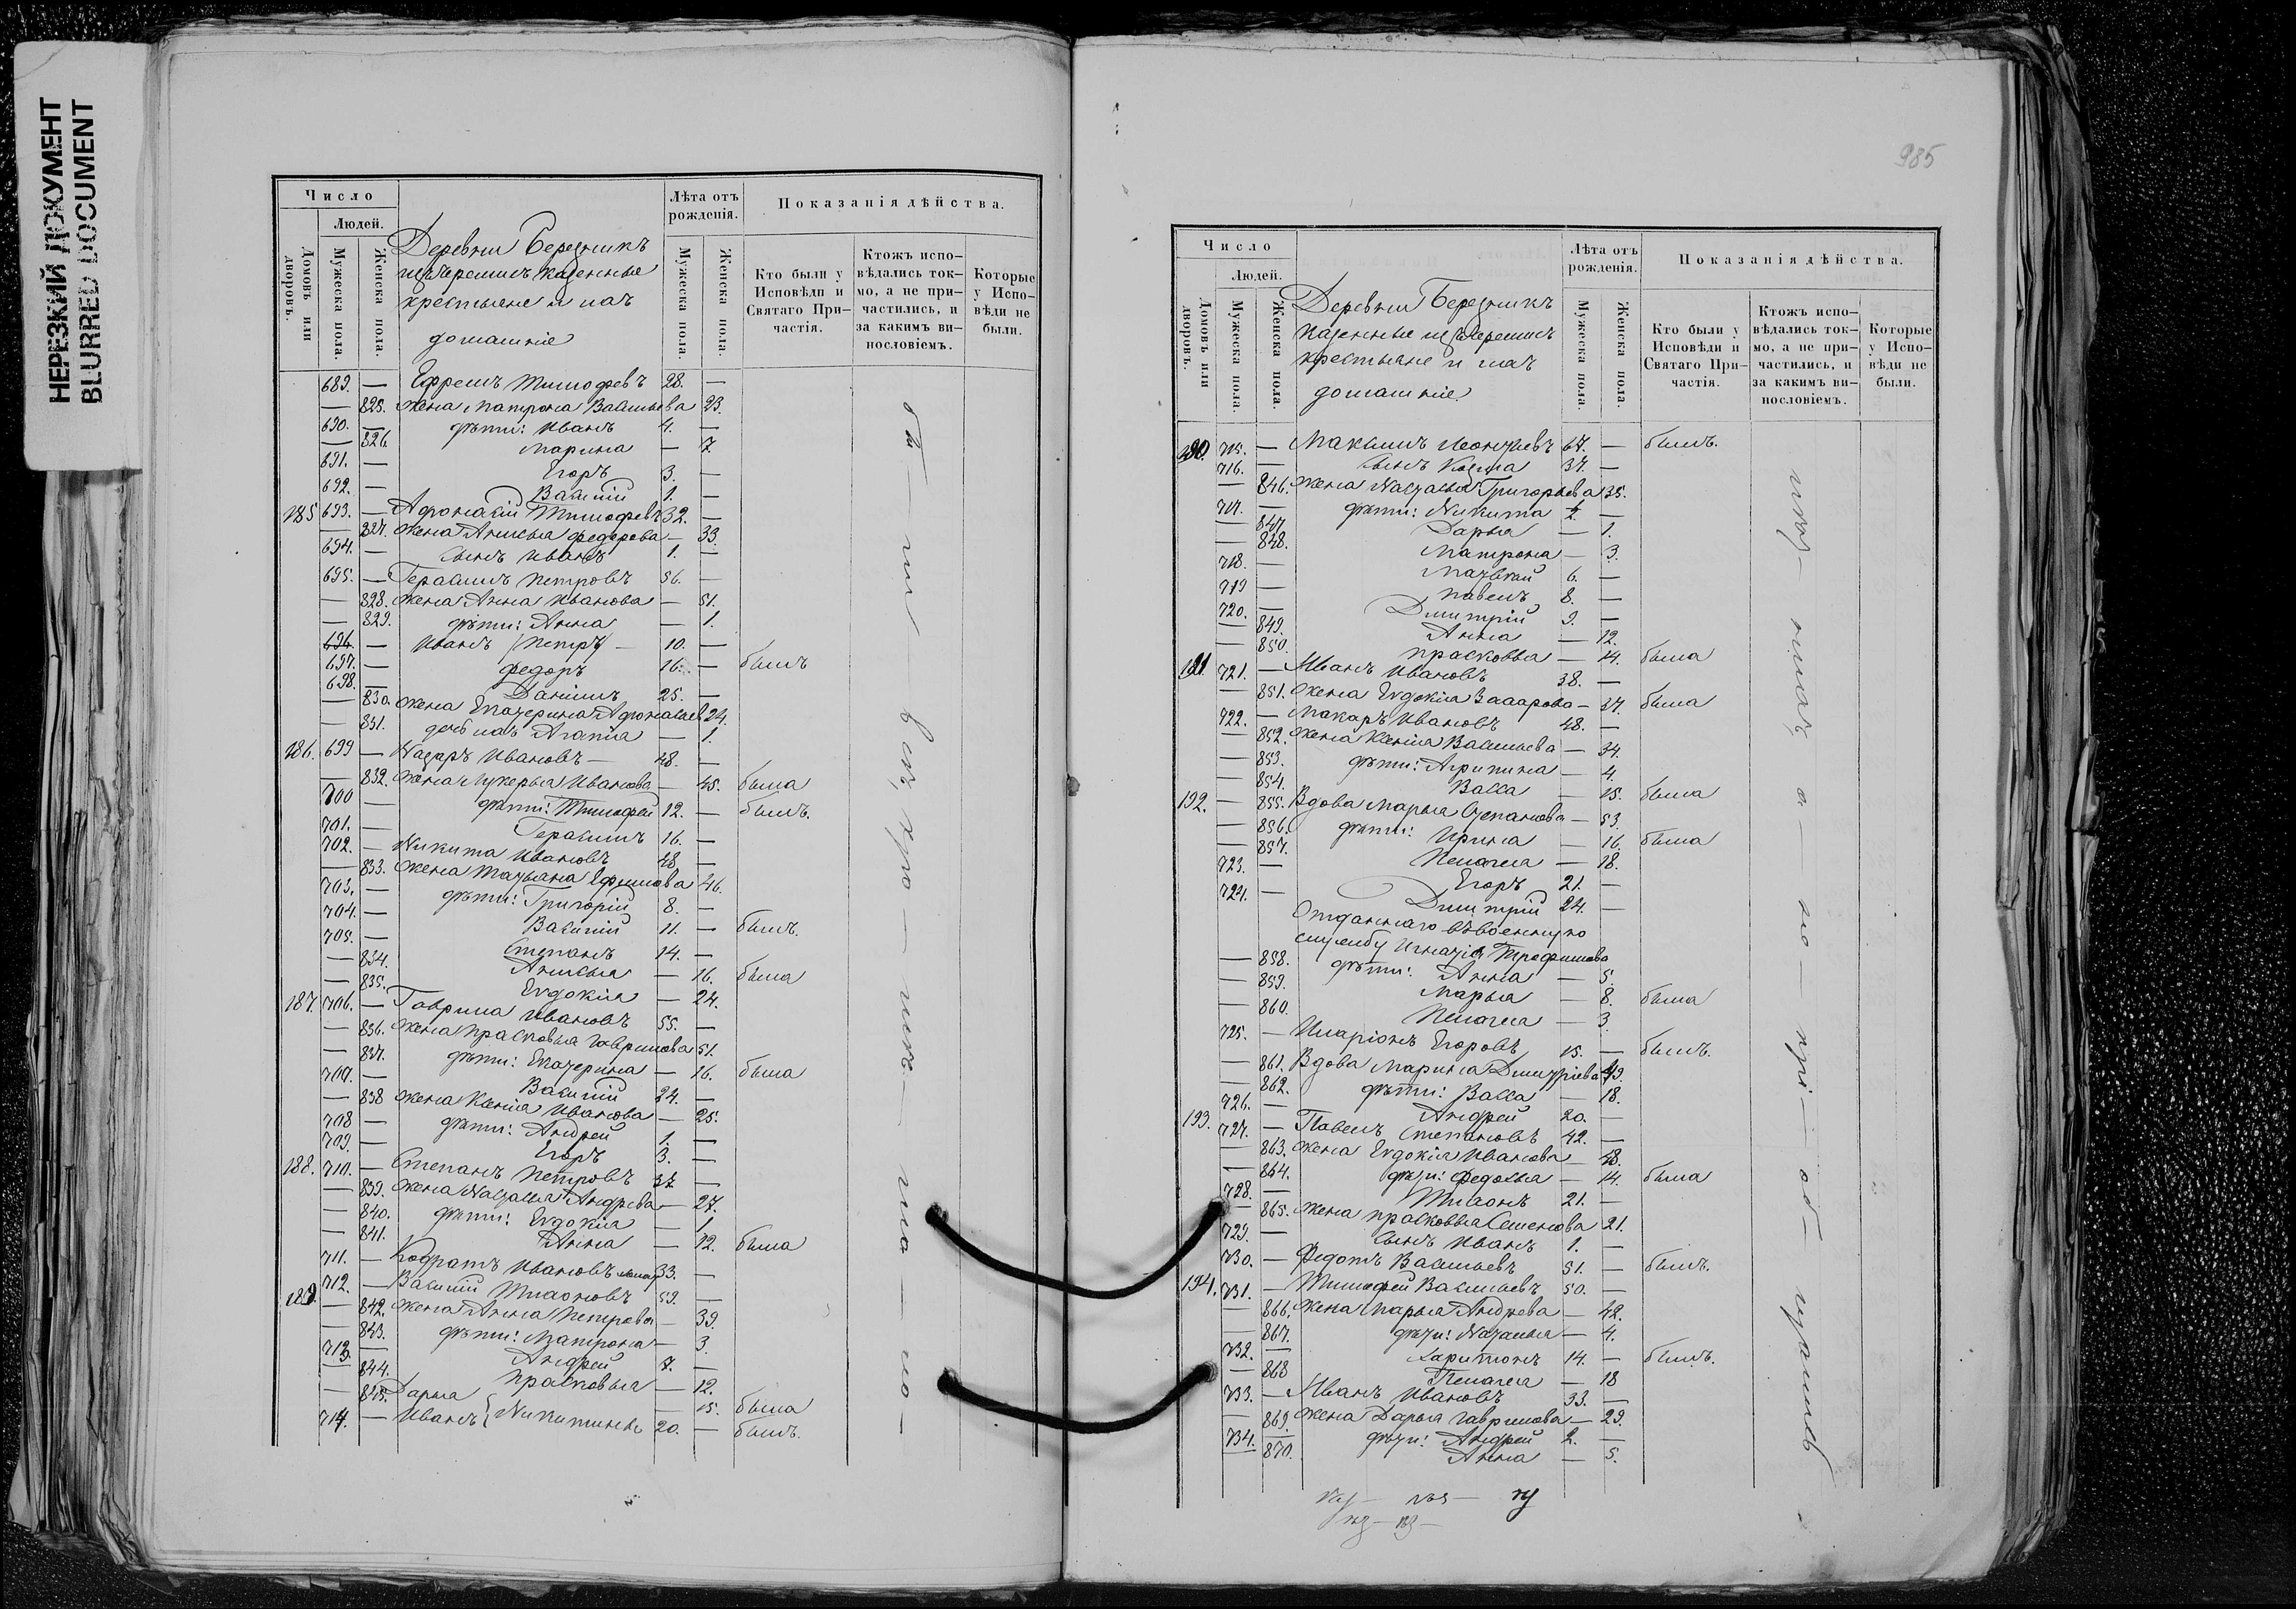 НЕРЕЗКИЙ ДОКУМЕНТ
BLURRED DOCUMENT
Число
Людей.
Домовъ или дворовъ.
Мужеска пола.
Женска пола.
Деревни Березникъ
изъ черемисъ казенные
крестьяне и ихъ
домашніе
Лѣта отъ рожденія.
Мужеска пола.
Женска пола.
Показанія дѣйства.
Кто были у Исповѣди и Святаго Причастія.
Ктожъ исповѣдались токмо, а не причастились, и за какимъ винословіемъ.
Которые у Исповѣди не были.
689. — Ефремъ Тимофевъ 28. —
— 825. жена Матрона Васильева 23.
690. — дѣти: Иванъ 4. —
— 826 Марина — 7
691. — Егоръ 3. —
692. — Василій 1. —
185 693. — Афонасій Тимофевъ 32. —
— 827. жена Анисья Федорова — 33.
694. — сынъ Иванъ 1. —
695. — Герасимъ Петровъ 56. —
— 828. жена Анна Иванова — 51.
— 829. дѣти: Анна — 1.
696. — Иванъ (Петръ) — 10. —
697. — Федоръ 16. — былъ
698. — Даніилъ 25. —
— 830. жена Екатерина Афонасьев 24.
— 831. дочь ихъ Агапія — 1.
186. 699 — Назаръ Ивановъ — 48. —
— 832. жена Лукерья Иванова — 45. была
700 — дѣти: Тимофей 12. — былъ.
701. — Герасимъ 16. —
702. — Никита Ивановъ 48 —
— 833. жена Татьяна Ефимова 46.
703. — дѣти: Григорій 8. —
704. — Василій 11. — былъ.
705. — Степанъ 14. —
— 834. Анисья — 16. была
— 835. Евдокія — 24.
187. 706. — Гаврила Ивановъ 55. —
— 836. жена Прасковья Гаврилова 51.
— 837. дѣти: Екатерина — 16. была
707. — Василій 24. —
— 838 жена Ксенія Иванова — 25.
708 — дѣти: Андрей 1. —
709. — Егоръ 3. —
188. 710. — Степанъ Петровъ 37 —
— 839. жена Наталья Андрева — 27.
— 840. дѣти: Евдокія — 1.
— 841. Анна — 12. была
711. — Кодратъ Ивановъ 33. —
189. 712. — Василій Тихоновъ 59. —
— 842. жена Анна Петрова — 39.
— 843. дѣти: Матрона — 3.
713. — Андрей 7. —
— 844. Прасковья — 12.
— 845. Дарья — 15. была
714. — Иванъ } Никитины 20. — былъ.
985
Число
Людей.
Домовъ или дворовъ.
Мужеска пола.
Женска пола.
Деревни Березникъ
казенные изъ черемисъ
крестьяне и ихъ
домашніе.
Лѣта отъ рожденія.
Мужеска пола.
Женска пола.
Показанія дѣйства.
Кто были у Исповѣди и Святаго Причастія.
Ктожъ исповѣдались токмо, а не причастились, и за какимъ винословіемъ.
Которые у Исповѣди не были.
190. 715. — Максимъ Леонтьевъ 67. — былъ.
716. — сынъ Козма 37. —
— 846. жена Наталья Григорьева 35.
717. — дѣти: Никита 2. —
— 847. Дарья — 1.
— 848. Матрона — 3.
718. — Матвѣй 6. —
719 — Павелъ 8. —
720. — Дмитрій 9. —
— 849. Анна — 12.
— 850. Прасковья — 14. была
191. 721. — Иванъ Ивановъ 38. —
— 851. жена Евдокія Захарова — 37. была
722. — Макаръ Ивановъ 48. —
— 852. жена Ксенія Васильева — 34.
— 853. дѣти: Агрипина — 4.
— 854. Васса — 15. была
192. — 855. Вдова Марья Степанова — 53.
— 856. дѣти: Ирина — 16. была
— 857. Пелагея — 18.
723. — Егоръ 21. —
724. — Дмитрій 24. —
Отданнаго въ военную
службу Игнатія Трофимова
— 858. дѣти: Анна — 5.
— 859. Марья — 8. была
— 860. Пелагея — 3.
725. — Иларіонъ Егоровъ 15. — былъ.
— 861. Вдова Марина Дмитріева 49.
— 862. дѣти: Васса — 18.
726. — Андрей 20. —
193. 727. — Павелъ Степановъ 42. —
— 863. жена Евдокія Иванова — 48.
— 864. дѣти: Федосья — 14. была
728. — Тихонъ 21. —
— 865. жена Прасковья Семенова 21.
729. — сынъ Иванъ 1. —
730. — Федотъ Васильевъ 51. — былъ.
194. 731. — Тимофей Васильевъ 50. —
— 866. жена Марья Андрева — 42.
— 867. дѣти: Наталья — 4.
732. — Харитонъ 14. — былъ.
— 868 Пелагея — 18
733. — Иванъ Ивановъ 33. —
— 869. жена Дарья Гаврилова — 29.
734. — дѣти: Андрей 2. —
— 870. Анна — 5.